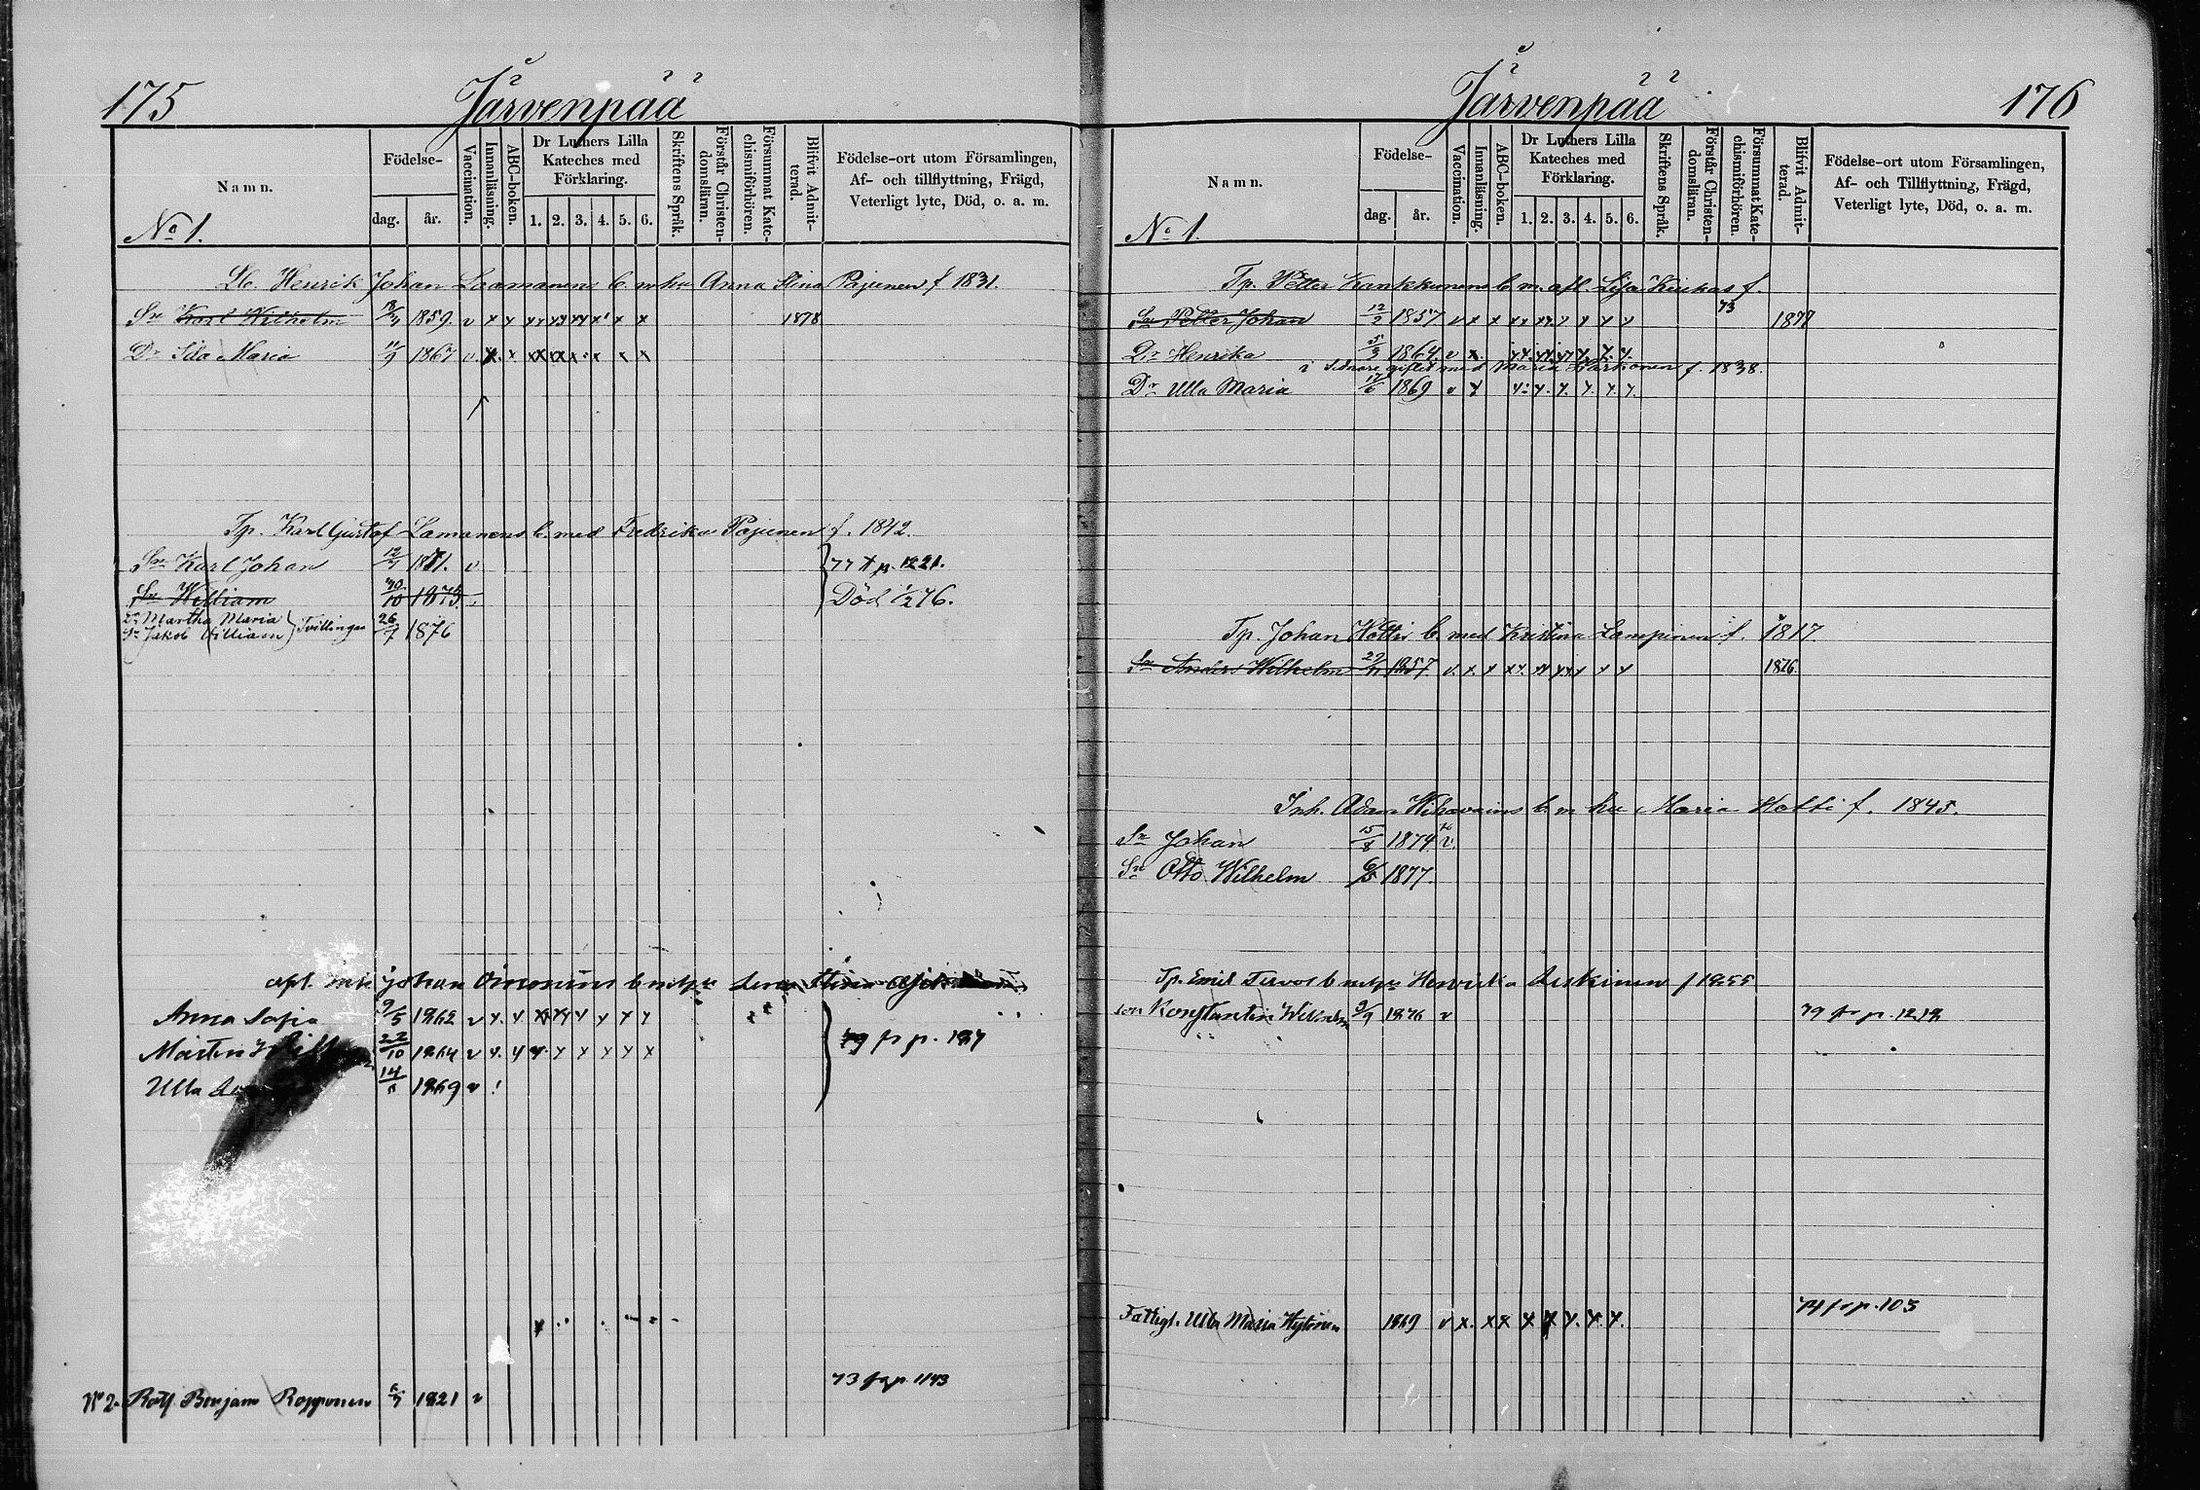 175
Järvenpää
Namn.
Födelse-
dag.
år.
Vaccination.
Innanläsning.
ABC-boken.
Dr Luthers Lilla Kateches med Förklaring.
1. 2. 3. 4. 5. 6.
Skriftens Språk.
Förstår Christendomsläran.
Försummat Katechismiförhören.
Blifvit Admitterad.
Födelse-ort utom Församlingen,
Af- och tillflyttning, Frägd,
Veterligt lyte, Död, o. a. m.
No 1.
Henrik Johan Laamanens b. m. hu Anna Stina Pajunen f 1831.
Sn Karl Wilhelm 1859. v x x x x x 1878
Dr Ida Maria 11/9 1867 v. x x x x x x
Tp. Karl Gustaf Lamanens b. med Fredrika Pajunen f. 1842.
Sn Karl Johan 12/4 v 77 fr p. 1221.
Sn William 30/10 1873. Död 1/2 76.
Dr Martha Maria
Sn Jakob William } Tvillingar 26/7 1876
Johan
Anna Sofia 9/5 1862 v x x x x x x x x
Mårten 22/10 1864 v x x x x x x x x 79 fr p. 187
Ulla 14/ 1869 v
73 fr p. 1143
No 2. Benjam Ropponen 1821 v
Järvenpää
176
Namn.
Födelse-
dag.
år.
Vaccination.
Innanläsning.
ABC-boken.
Dr Luthers Lilla Kateches med Förklaring.
1. 2. 3. 4. 5. 6.
Skriftens Språk.
Förstår Christendomsläran.
Försummat Katechismiförhören.
Blifvit Admitterad.
Födelse-ort utom Församlingen,
Af- och Tillflyttning, Frägd,
Veterligt lyte, Död, o. a. m.
No 1.
Tp. Petter b. m. afl. Lisa Kiukas f.
Sn Petter Johan 12/2 1857 v x x x x x x x x 73 1877
Dr Henrika 5/3 1864. v x. x x x x x x
i senare giftet med Maria f. 1838.
Dr Ulla Maria 17/6 1869 v x x x x x x x
Tp. Johan Hotti b. med Kristina Lampinen f. 1817
Sn Anders Wilhelm 1857. v. x x x x x x x x 1876.
Inh. Adam Wihavains b. m. hu Maria Hotti f. 1845.
Sn Johan 15/8 1874 v.
Sn Otto Wilhelm 6/5 1877.
Tp. Emil Tervos b. Henrika f 1855
son Konstantin Wilhelm 1876 v 79 fr p. 1212
74 fr p. 103
Fattigt. Ulla Maria Hytönen 1869 v x. x x x x x x x.